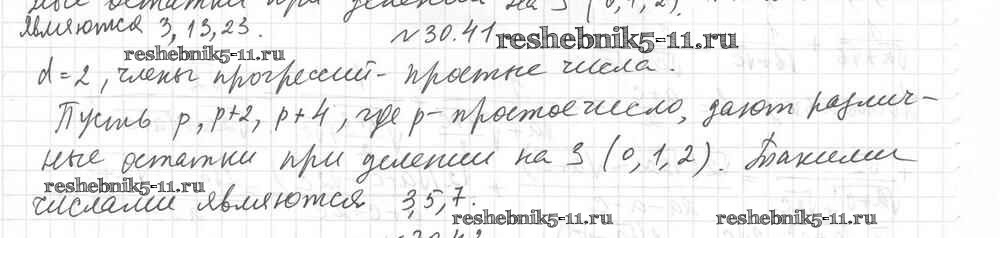 ные остатки при делении на 3 (0,1,2).
являются 3, 13, 23.
№ 30.41 reshebnik5-11.ru
reshebnik5-11.ru
d=2, члены прогрессий - простые числа.
Пусть p, p+2, p+4, где p - простое число, дают различ-
ные остатки при делении на 3 (0,1,2). Такими
reshebnik5-11.ru
числами являются 3,5,7.
reshebnik5-11.ru reshebnik5-11.ru